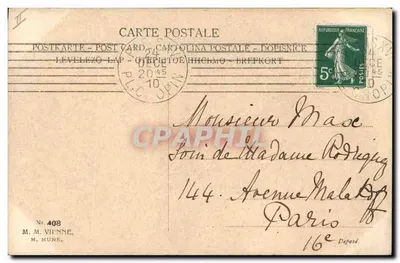 CARTE POSTALE
POSTKARTE - POST CARD - CARTOLINA POSTALE - DOPISNICE
LEVELEZŐ-LAP - ОТКРЫТОЕ ПИСЬМО - BREFKORT
RÉPUBLIQUE FRANÇAISE
5c
POSTES
24
20 45
10
PL. CHOPIN
CARPHIL
Monsieur Max
Soin de Madame Rodrigues
144. Avenue Malakoff
Paris
16e
Déposé
Nr. 408
M. M. VIENNE,
M. MUNK.